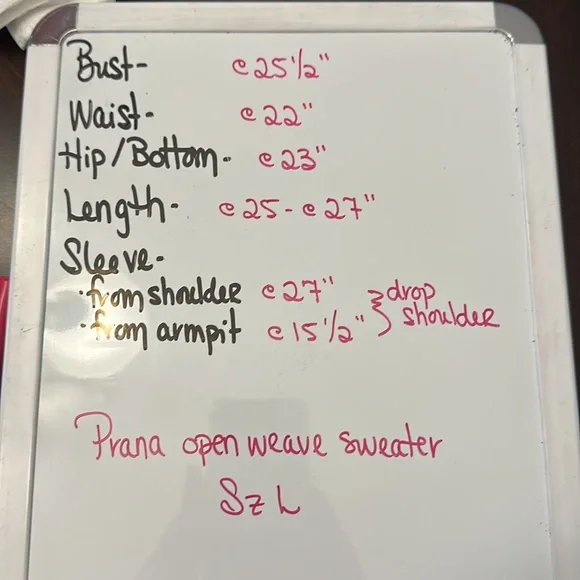 Bust- c 25 1/2"
Waist- c 22"
Hip/Bottom- c 23"
Length- c 25 - c 27"
Sleeve-
·from shoulder c 27"
·from armpit c 15 1/2" } drop shoulder
Prana open weave sweater
Sz L